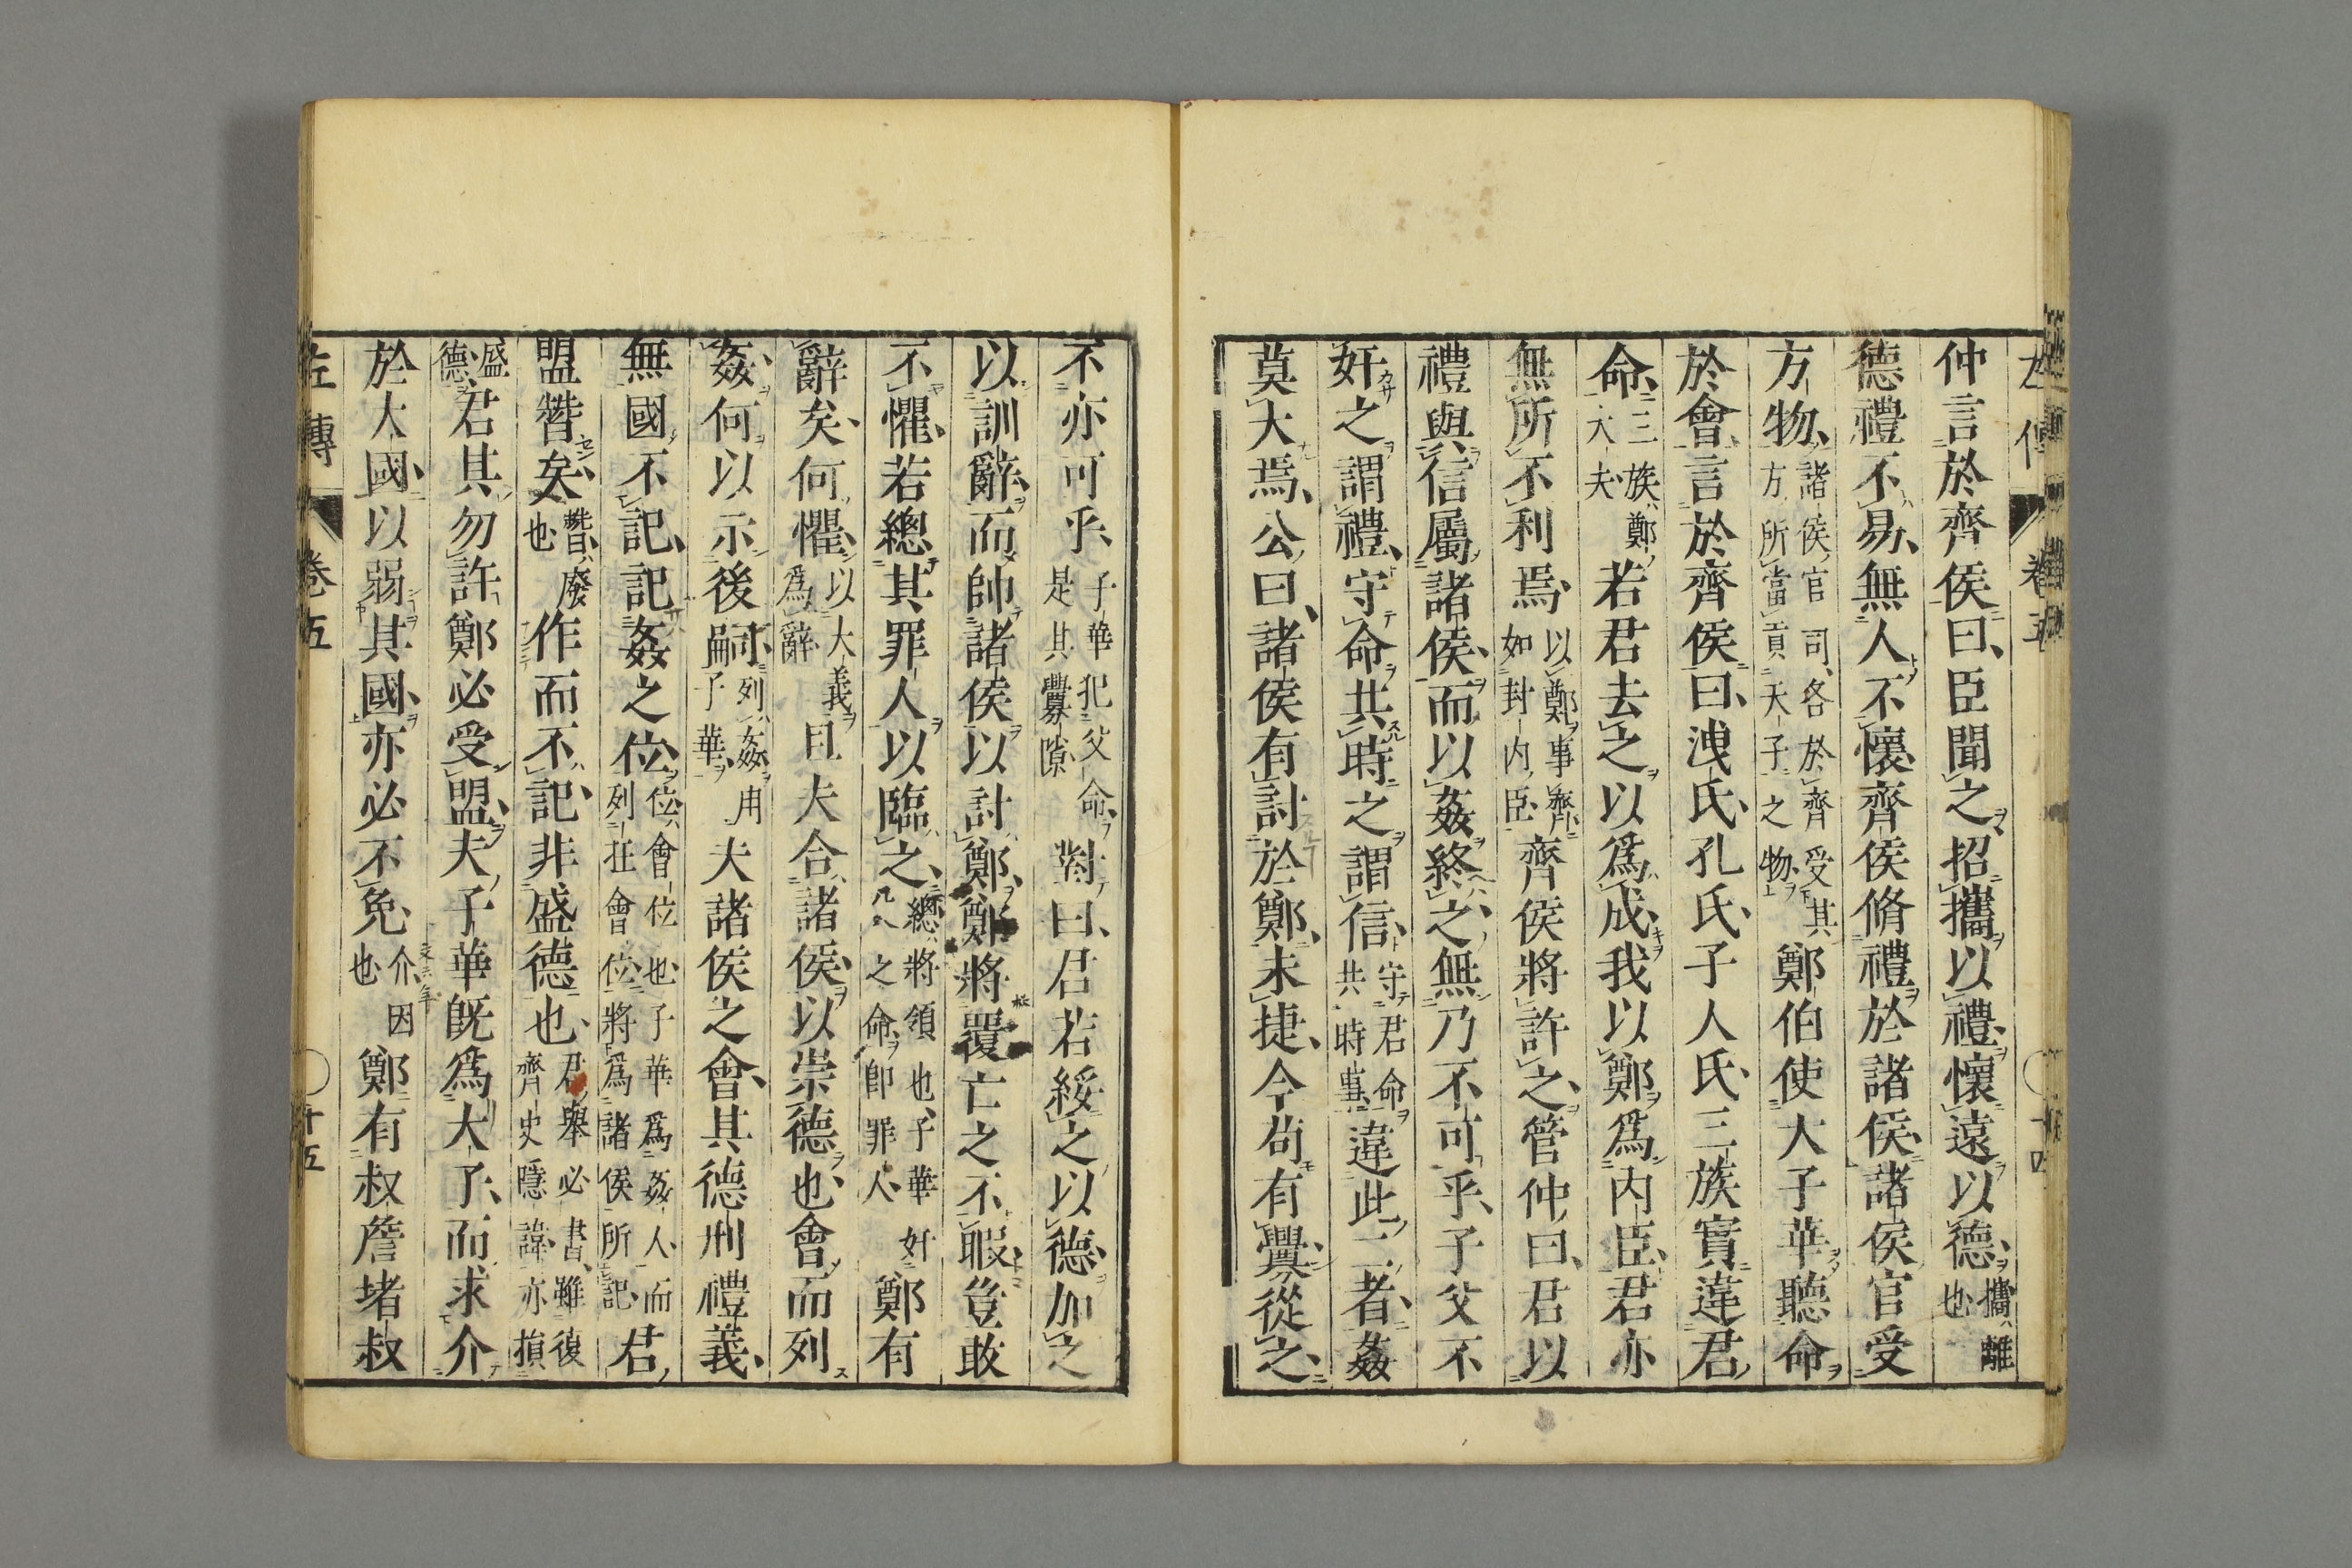 左傳 卷五 十四
仲言於齊侯曰、臣聞之、招攜以禮、懷遠以德、攜、離也
德禮不易、無人不懷、齊侯脩禮於諸侯、諸侯官受
方物、諸侯官司、各於齊受其方所當貢天子之物、鄭伯使大子華聽命
於會、言於齊侯曰、洩氏、孔氏、子人氏、三族實違君
命、三族、鄭大夫、若君去之以爲成、我以鄭爲內臣、君亦
無所不利焉、以鄭事齊、如封內臣、齊侯將許之、管仲曰、君以
禮與信屬諸侯、而以姦終之、無乃不可乎、子父不
奸之謂禮、守命共時之謂信、守君命共時事、違此二者、姦
莫大焉、公曰、諸侯有討於鄭、未捷、今苟有釁、從之、
不亦可乎、子華犯父命、是其釁隙、對曰、君若綏之以德、加之
以訓辭、而帥諸侯以討鄭、鄭將覆亡之不暇、豈敢
不懼、若總其罪人以臨之、總、將領也、子華奸父之命、即罪人、鄭有
辭矣、何懼、以大義爲辭、且夫合諸侯、以崇德也、會而列
姦、何以示後嗣、列姦、用子華、夫諸侯之會、其德刑禮義、
無國不記、記姦之位、位、會位也、子華爲姦人、而列在會位、將爲諸侯所記、君
盟替矣、替、廢也、作而不記、非盛德也、君舉必書、雖復齊史隱諱、亦損
盛德、君其勿許、鄭必受盟、夫子華旣爲大子、而求介
於大國、以弱其國、亦必不免、介、因也、鄭有叔詹堵叔
左傳 卷五 十五